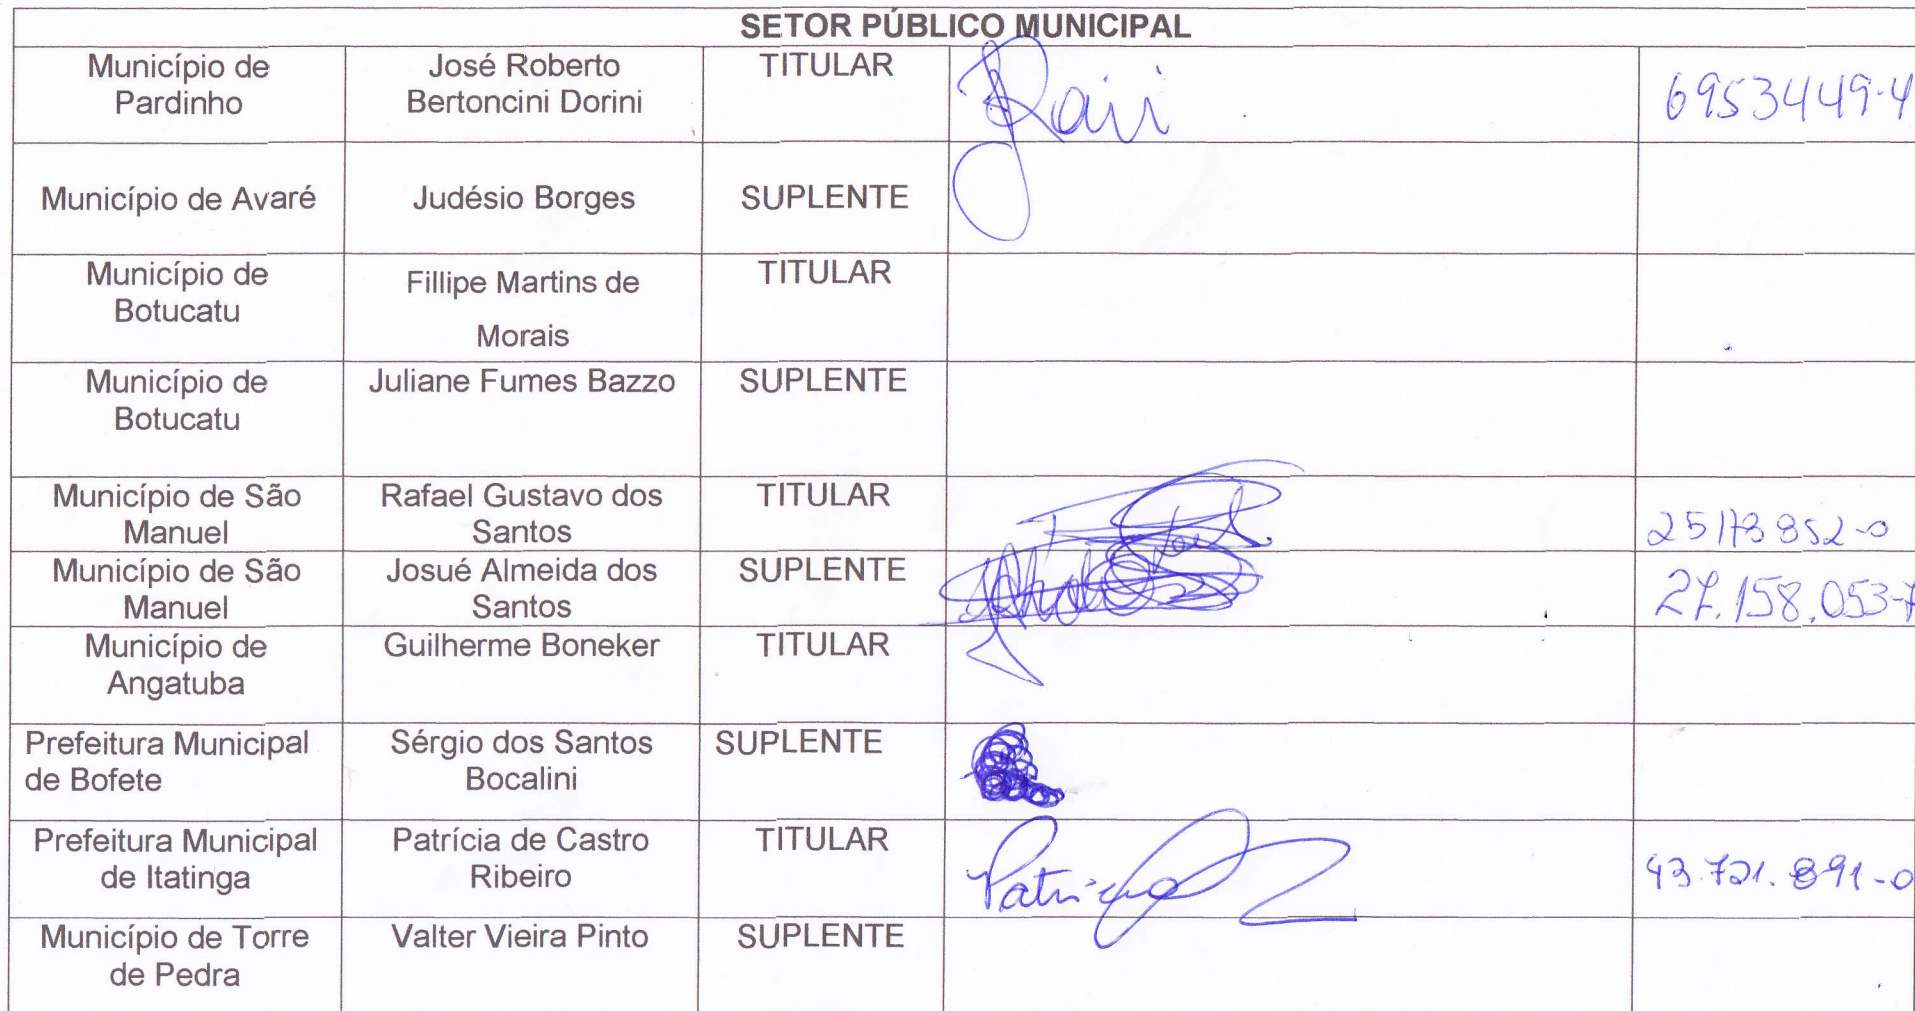 SETOR PÚBLICO MUNICIPAL
Município de
Pardinho
José Roberto
Bertoncini Dorini
TITULAR
6953449-4
Município de Avaré
Judésio Borges
SUPLENTE
Município de
Botucatu
Fillipe Martins de
Morais
TITULAR
Município de
Botucatu
Juliane Fumes Bazzo
SUPLENTE
Município de São
Manuel
Rafael Gustavo dos
Santos
TITULAR
Município de São
Manuel
Josué Almeida dos
Santos
SUPLENTE
27.158.053-7
Município de
Angatuba
Guilherme Boneker
TITULAR
Prefeitura Municipal
de Bofete
Sérgio dos Santos
Bocalini
SUPLENTE
Prefeitura Municipal
de Itatinga
Patrícia de Castro
Ribeiro
TITULAR
Patricia
43.721.891-0
Município de Torre
de Pedra
Valter Vieira Pinto
SUPLENTE